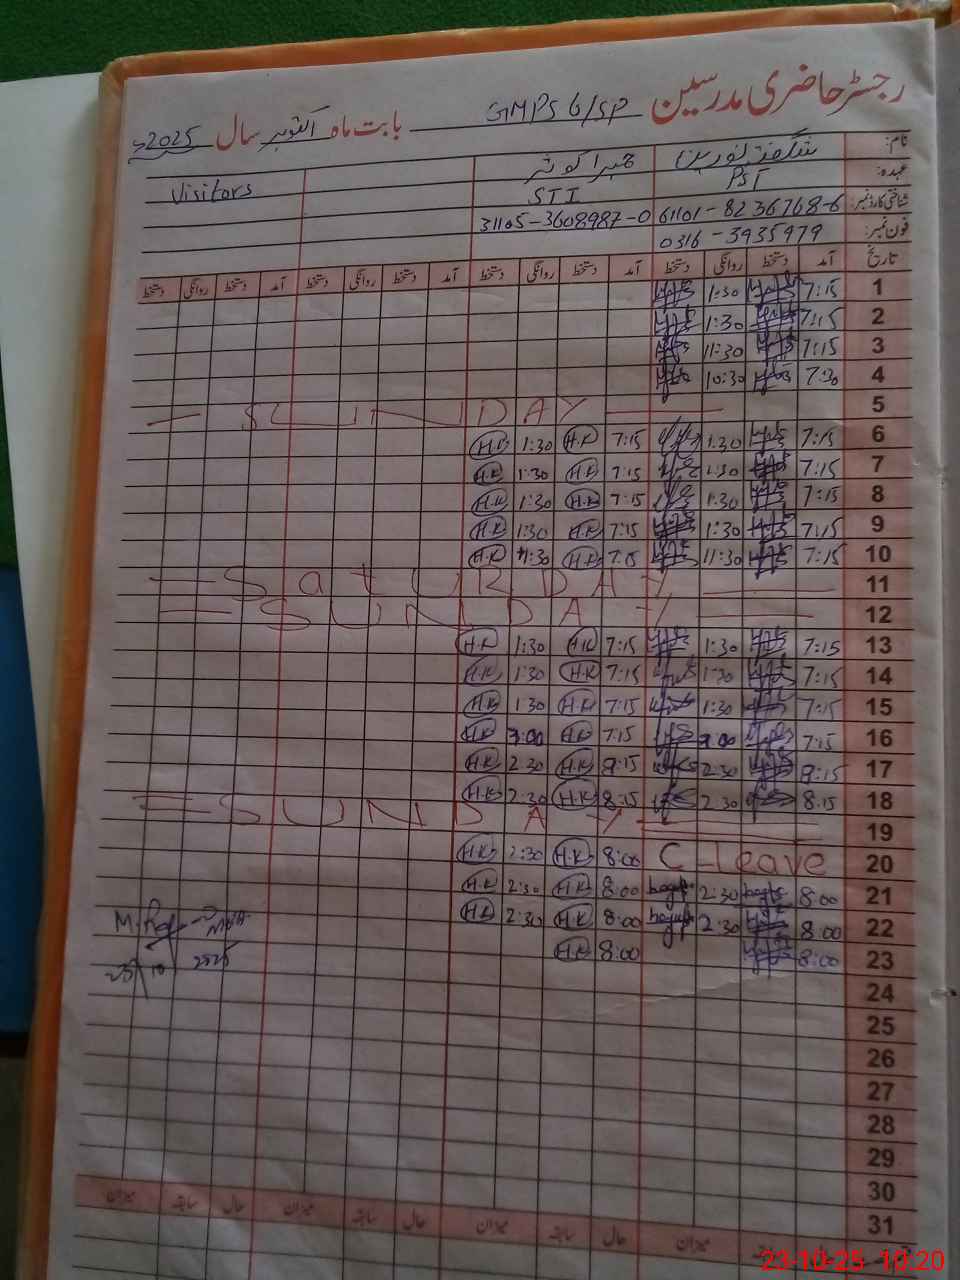 رجسٹر حاضری مدرسین GMPS 6/SP بابت ماہ اکتوبر سال 2025ء
نام: شگفتہ نورین حمیرا کوثر
عہدہ: PST STI Visitors
شناختی کارڈ نمبر: 61101-8236768-6 31105-3608987-0
فون نمبر: 0316-3935979
تاریخ آمد دستخط روانگی دستخط آمد دستخط روانگی دستخط آمد دستخط روانگی دستخط آمد دستخط روانگی دستخط
1 7:15 1:30
2 7:15 1:30
3 7:15 11:30
4 7:30 10:30
5 SUNDAY
6 7:15 1:30 7:15 H.K 1:30 H.K
7 7:15 1:30 7:15 H.K 1:30 H.K
8 7:15 1:30 7:15 H.K 1:30 H.K
9 7:15 1:30 7:15 H.K 1:30 H.K
10 7:15 11:30 7:15 H.K 11:30 H.K
11 SatURDAY
12 SUNDAY
13 7:15 1:30 7:15 H.K 1:30 H.K
14 7:15 1:30 7:15 H.K 1:30 H.K
15 7:15 1:30 7:15 H.K 1:30 H.K
16 7:15 7:15 H.K H.K
17 2:30 H.K 2:30 H.K
18 8:15 2:30 8:15 H.K 2:30 H.K
19 SUNDAY
20 C-leave 8:00 H.K 2:30 H.K
21 8:00 2:30 8:00 H.K 2:30 H.K
22 8:00 2:30 8:00 H.K 2:30 H.K
23 8:00 8:00 H.K
24
25
26
27
28
29
30
31
میزان سابقہ حال میزان سابقہ حال میزان سابقہ حال میزان
23-10-25 10:20